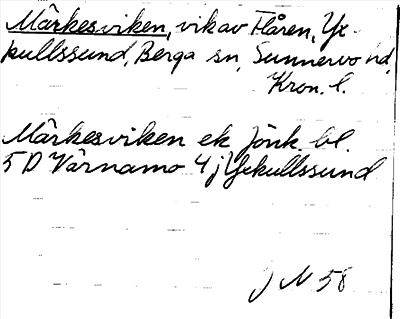 Märkesviken, vik av Flåren, Yx-
kullssund, Berga sn, Sunnerbo hd,
Kron. l.
Märkesviken ek Jönk. bl.
5 D Värnamo 4 j Yxkullssund
J N 58